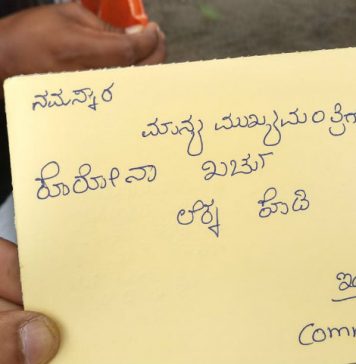 ನಮಸ್ಕಾರ
ಮಾನ್ಯ ಮುಖ್ಯಮಂತ್ರಿಗ
ಕೊರೋನಾ ಖರ್ಚು
ಲೆಕ್ಕ ಕೊಡಿ
ಇಂ
Comm